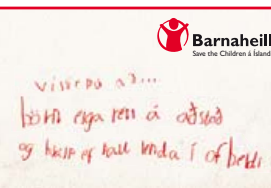 Barnaheill
Save the Children á Íslandi
vissir þú að...
börn eiga rétt á aðstoð
og hjálp ef
í ofbeldi